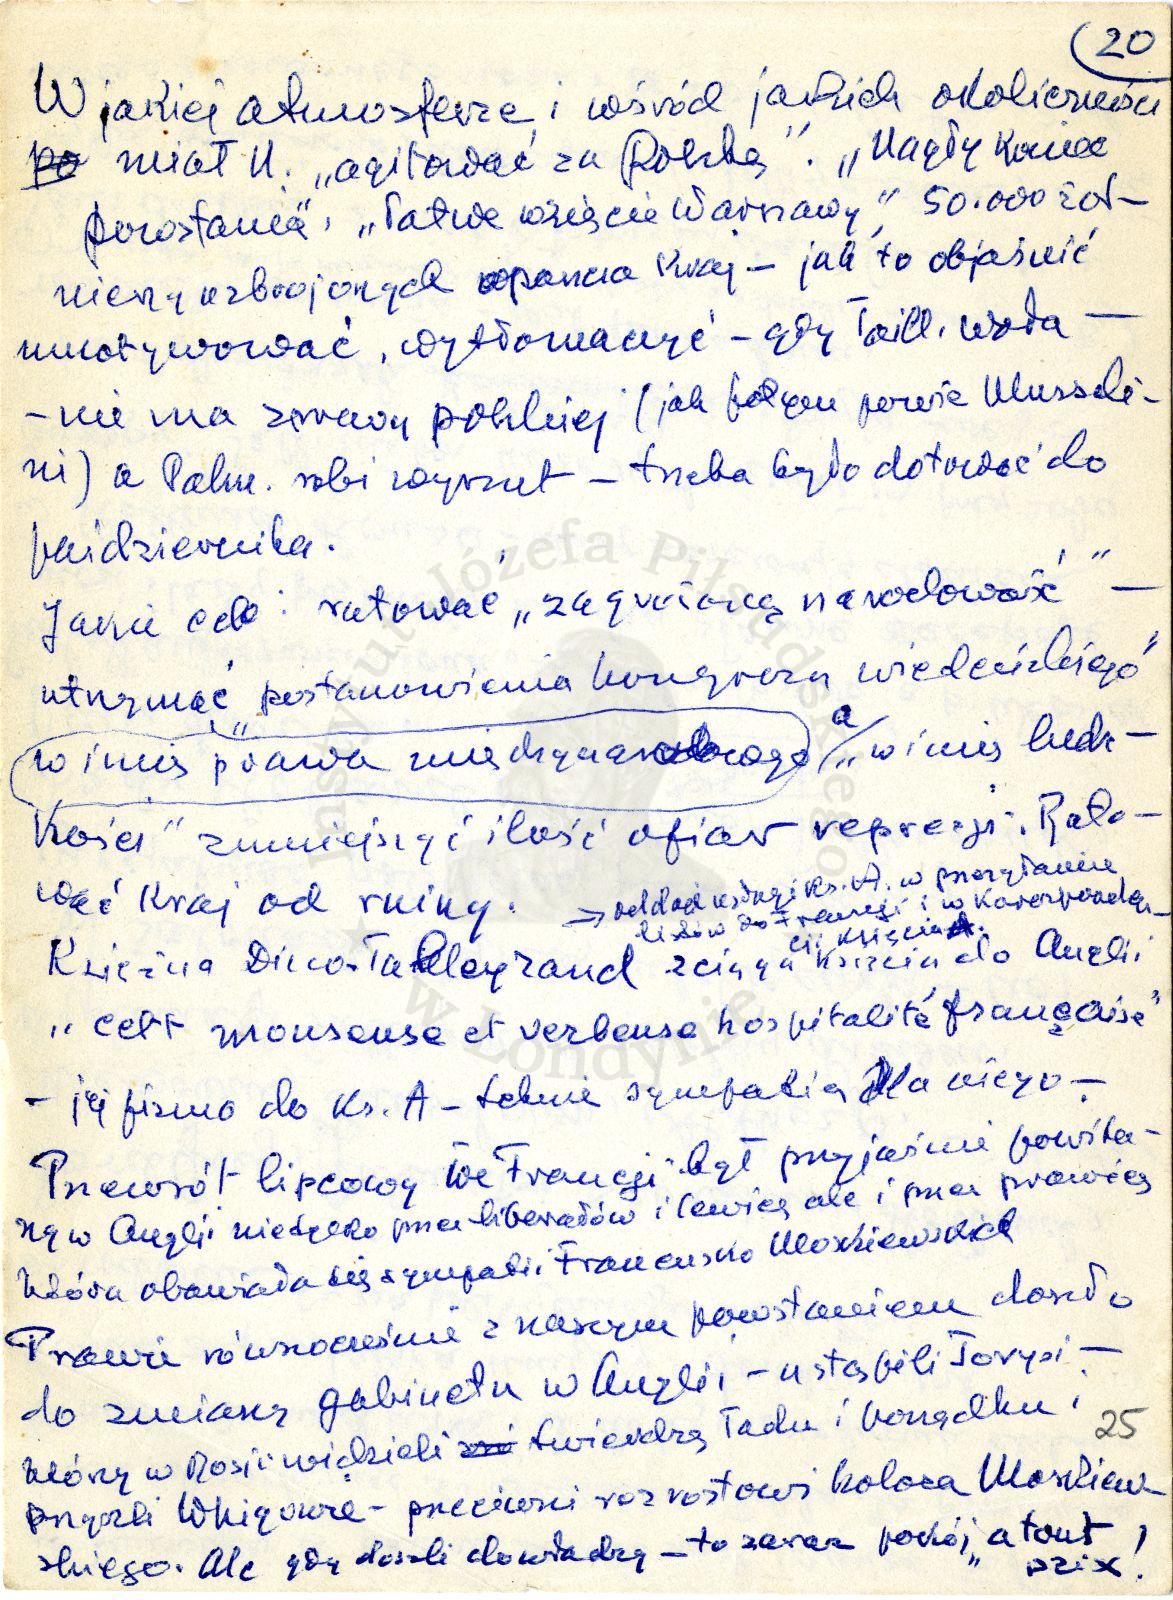 20
W jakiej atmosferze i wśród jakich okoliczności
miał N. „agitować za Polską”. „Nagły koniec
powstania”, „Łatwe wzięcie Warszawy” 50.000 żoł-
nierzy uzbrojonych oparcia Kraj – jak to objaśnić
umotywować, wytłomaczyć – gdy Taill. woła –
– nie ma sprawy polskiej (jak potem powie Mussoli-
ni) a Palm. robi wyrzut – trzeba było dotrwać do
października.
Jakie cele: ratować „zagrożoną narodowość” –
utrzymać „postanowienia kongresu wiedeńskiego”
w imię prawa międzynarodowego a/ „w imię ludz-
kości” zmniejszyć ilość ofiar represji. Rato-
wać Kraj od ruiny.
→ oddać usługi Ks. A. w przesyłaniu
listów do Francji i w Koresponden-
cji Księcia A.
Księżna Dino-Talleyrand ściąga Księcia do Anglii
„cett monsense et verbeuse hospitalité française”
– jej pismo do Ks. A – sympatia dla niego –
Przewrót lipcowy we Francji był przyjaźnie powita-
ny w Anglii nie tylko przez liberałów i lewicę ale i przez prawicę
która obawiała się sympatii Francusko Moskiewskich
Prawie równocześnie z naszym powstaniem doszło
do zmiany gabinetu w Anglii – ustąpili Torysi –
którzy w Rosji widzieli twierdzę ładu i porządku i
25
przyszli Whigowie – przeciwni rozrostowi kolosa Moskiew-
skiego. Ale gdy doszli do władzy – to zaraz pokój „a tout
prix!